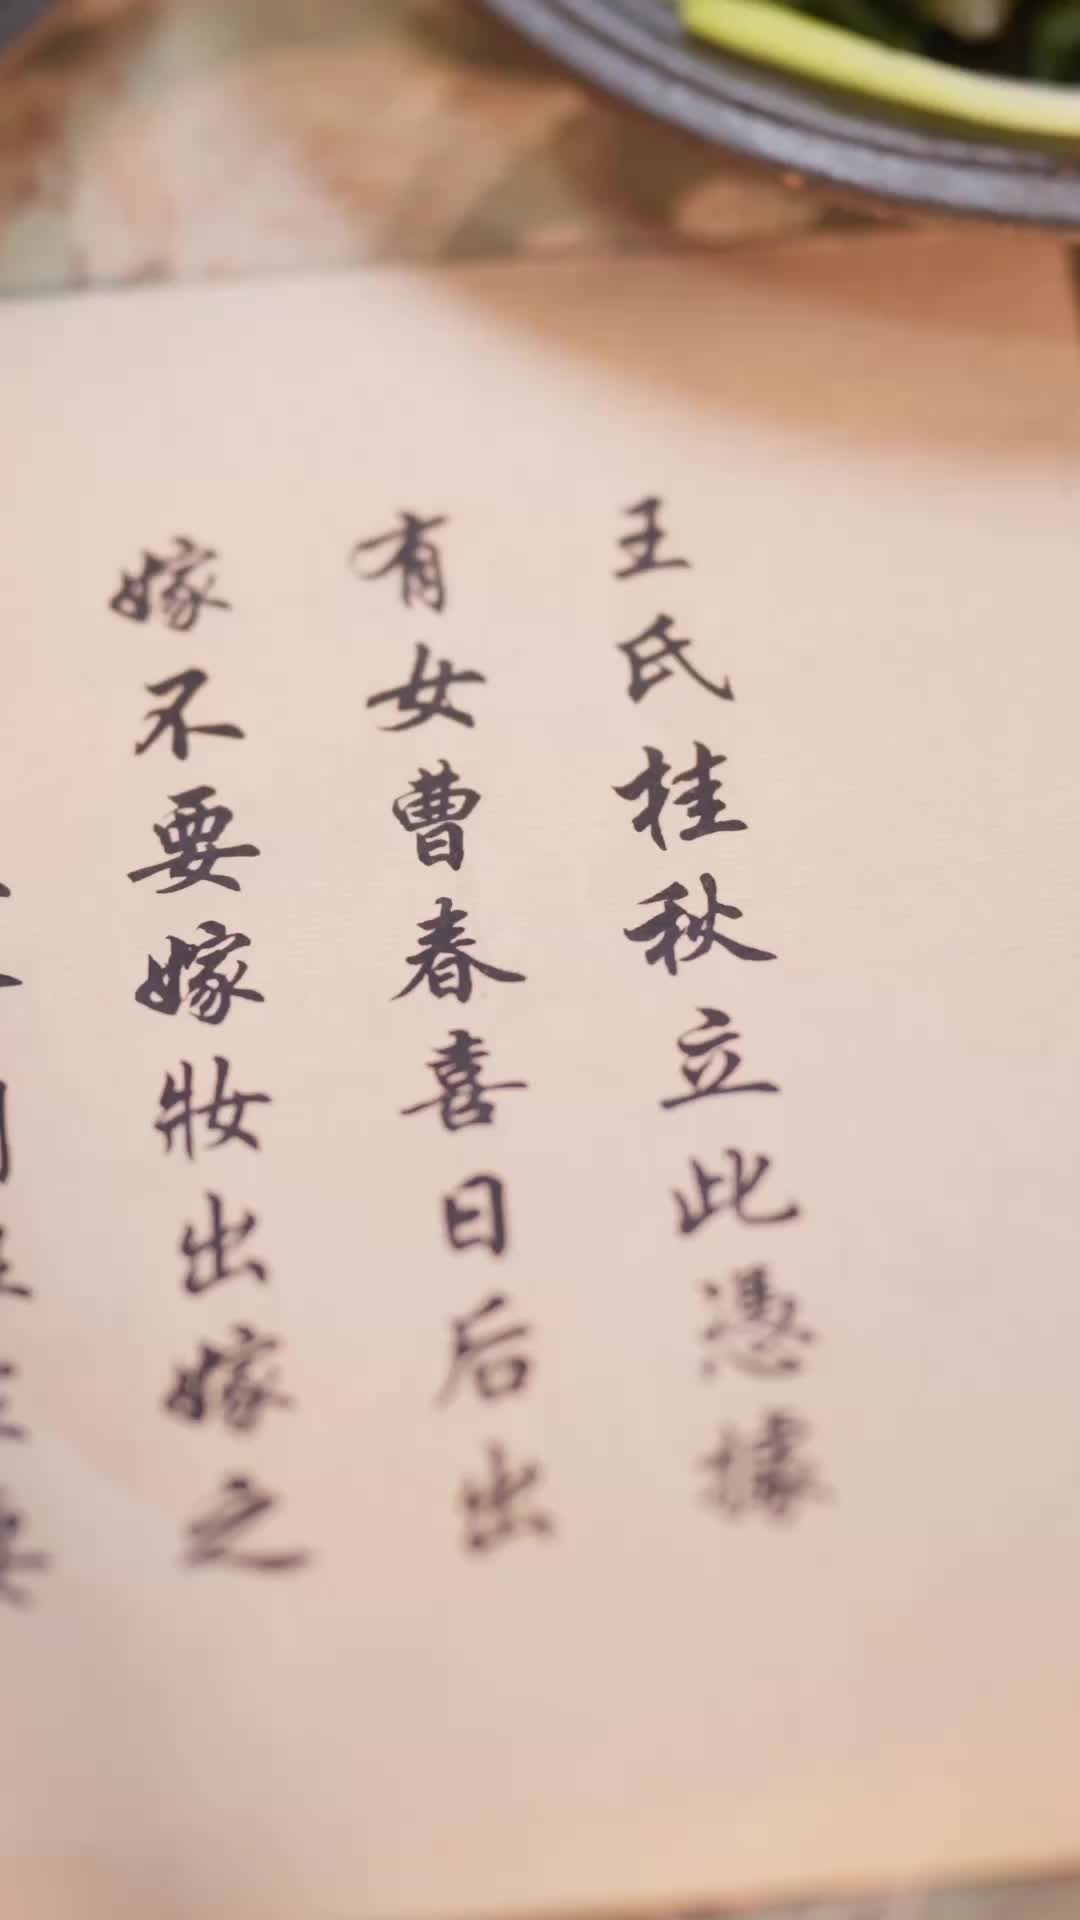 王氏桂秋立此憑據
有女曹春喜日后出
嫁不要嫁妝出嫁之